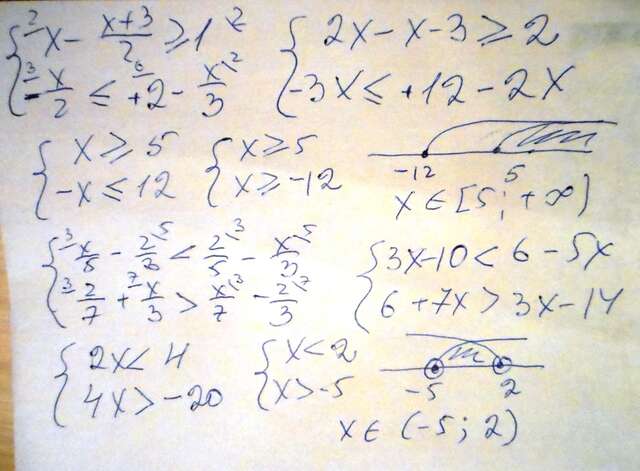 { ²x - (x+3)/2 ≥ 1 \²
{ ³-x/2 ≤ ⁶+2 - x/3 \²
{ 2x - x - 3 ≥ 2
{ -3x ≤ +12 - 2x
{ x ≥ 5
{ -x ≤ 12
{ x ≥ 5
{ x ≥ -12
-12 5
x ∈ [5; +∞)
{ ³x/5 - 2/3 \⁵ < 2/5 \³ - x/3 \⁵
{ ³2/7 + ⁷x/3 > x/7 \³ - 2/3 \⁷
{ 3x-10 < 6 - 5x
{ 6 + 7x > 3x - 14
{ 2x < 4
{ 4x > -20
{ x < 2
{ x > -5
-5 2
x ∈ (-5; 2)